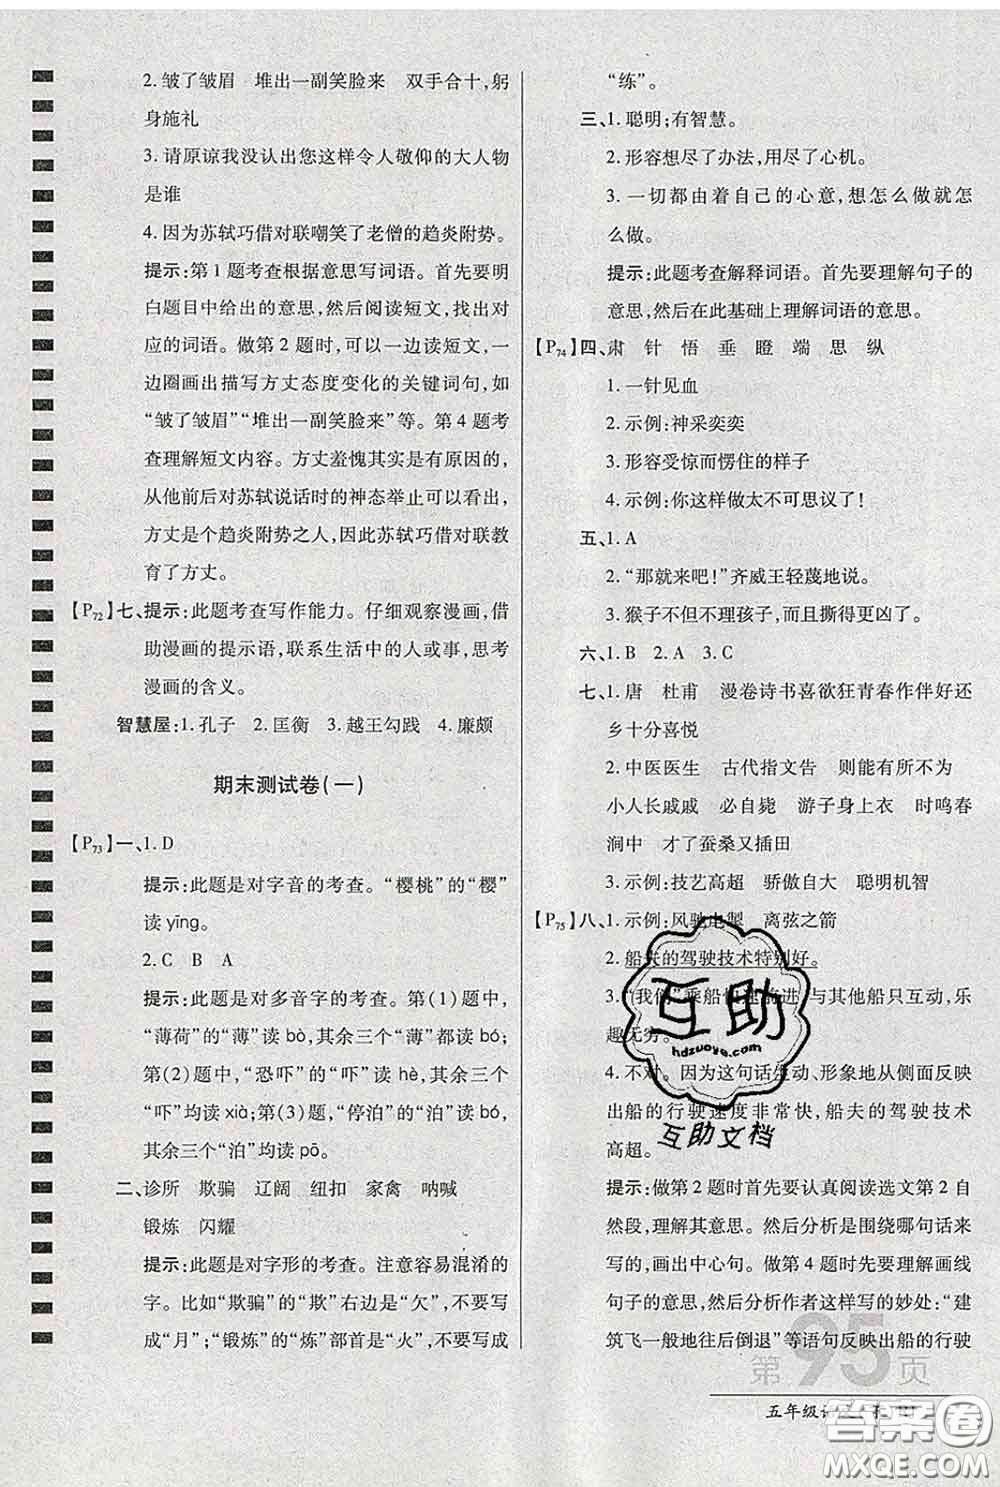 2. 皱了皱眉　堆出一副笑脸来　双手合十,躬
身施礼
3. 请原谅我没认出您这样令人敬仰的大人物
是谁
4. 因为苏轼巧借对联嘲笑了老僧的趋炎附势。
提示:第 1 题考查根据意思写词语。首先要明
白题目中给出的意思,然后阅读短文,找出对
应的词语。做第 2 题时,可以一边读短文,一
边圈画出描写方丈态度变化的关键词句,如
“皱了皱眉”“堆出一副笑脸来”等。第 4 题考
查理解短文内容。方丈羞愧其实是有原因的,
从他前后对苏轼说话时的神态举止可以看出,
方丈是个趋炎附势之人,因此苏轼巧借对联教
育了方丈。
【P72】七、提示:此题考查写作能力。仔细观察漫画,借
助漫画的提示语,联系生活中的人或事,思考
漫画的含义。
智慧屋:1. 孔子　2. 匡衡　3. 越王勾践　4. 廉颇
期末测试卷(一)
【P73】一、1. D
提示:此题是对字音的考查。“樱桃”的“樱”
读 yīng。
2. C　B　A
提示:此题是对多音字的考查。第(1)题中,
“薄荷”的“薄”读 bò,其余三个“薄”都读 bó;
第(2)题中,“恐吓”的“吓”读 hè,其余三个
“吓”均读 xià;第(3)题,“停泊”的“泊”读 bó,
其余三个“泊”均读 pō。
二、诊所　欺骗　辽阔　纽扣　家禽　呐喊
锻炼　闪耀
提示:此题是对字形的考查。注意容易混淆的
字。比如“欺骗”的“欺”右边是“欠”,不要写
成“月”;“锻炼”的“炼”部首是“火”,不要写成
“练”。
三、1. 聪明;有智慧。
2. 形容想尽了办法,用尽了心机。
3. 一切都由着自己的心意,想怎么做就怎
么做。
提示:此题考查解释词语。首先要理解句子的
意思,然后在此基础上理解词语的意思。
【P74】四、肃　针　悟　垂　瞪　端　思　纵
1. 一针见血
2. 示例:神采奕奕
3. 形容受惊而愣住的样子
4. 示例:你这样做太不可思议了!
五、1. A
2. “那就来吧!”齐威王轻蔑地说。
3. 猴子不但不理孩子,而且撕得更凶了。
六、1. B　2. A　3. C
七、1. 唐　杜甫　漫卷诗书喜欲狂青春作伴好还
乡十分喜悦
2. 中医医生　古代指文告　则能有所不为
小人长戚戚　必自毙　游子身上衣　时鸣春
涧中　才了蚕桑又插田
3. 示例:技艺高超　骄傲自大　聪明机智
【P75】八、1. 示例:风驰电掣　离弦之箭
2. 船夫的驾驶技术特别好。
3. “我们”乘船快速前进,与其他船只互动,乐
趣无穷。
4. 不对。因为这句话生动、形象地从侧面反映
出船的行驶速度非常快,船夫的驾驶技术
高超。
提示:做第 2 题时首先要认真阅读选文第 2 自
然段,理解其意思。然后分析是围绕哪句话来
写的,画出中心句。做第 4 题时要理解画线
句子的意思,然后分析作者这样写的妙处:“建
筑飞一般地往后倒退”等语句反映出船的行驶
互助
hdzuoye.com
互助文档
第95页
五年级
答案圈
MXQE.COM